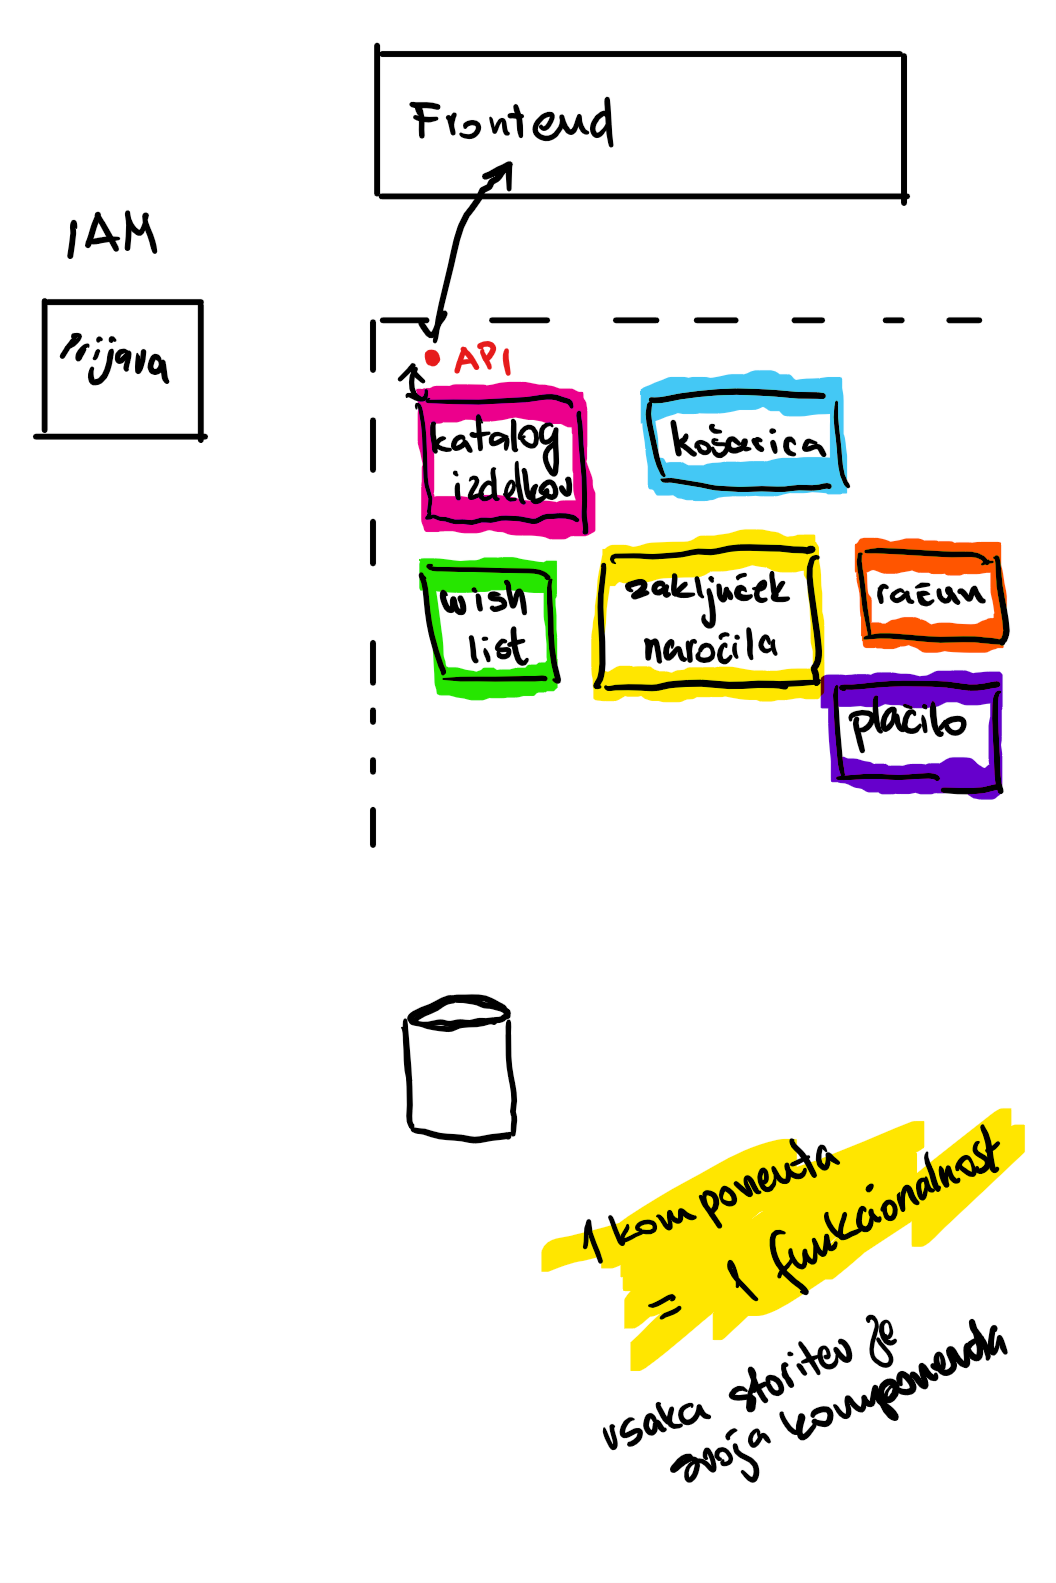 Frontend
IAM
Prijava
API
katalog
izdelkov
košarica
wish
list
zaključek
naročila
račun
plačilo
1 komponenta
= 1 funkcionalnost
vsaka storitev je
svoja komponenta